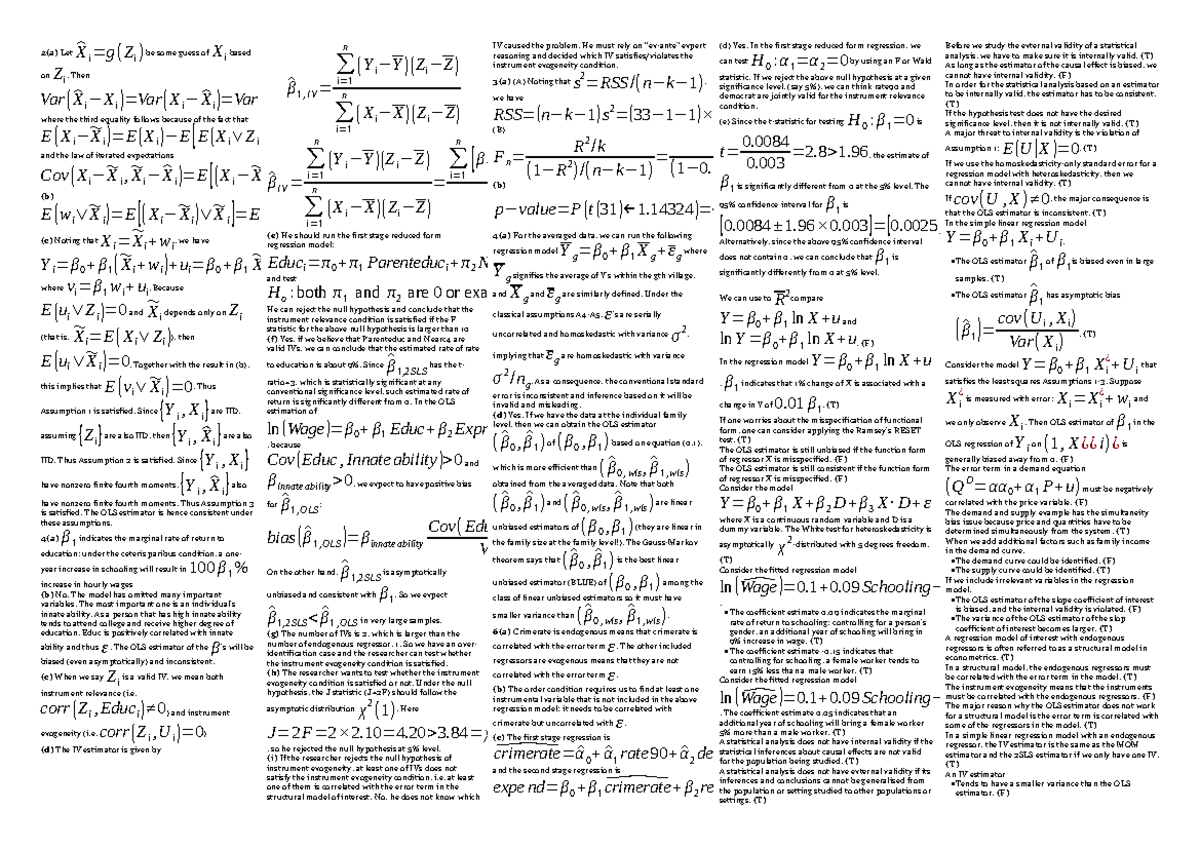 2(a) Let X̂ᵢ=g(Zᵢ) be some guess of Xᵢ based
on Zᵢ. Then
Var(X̂ᵢ−Xᵢ)=Var(Xᵢ−X̂ᵢ)=Var
where the third equality follows because of the fact that
E(Xᵢ−X̃ᵢ)=E(Xᵢ)−E[E(Xᵢ∨Zᵢ
and the law of iterated expectations
Cov(Xᵢ−X̃ᵢ,X̃ᵢ−X̂ᵢ)=E[(Xᵢ−X̃
(b)
E(wᵢ∨X̃ᵢ)=E[(Xᵢ−X̃ᵢ)∨X̃ᵢ]=E
(c) Noting that Xᵢ=X̃ᵢ+wᵢ, we have
Yᵢ=β₀+β₁(X̃ᵢ+wᵢ)+uᵢ=β₀+β₁X̃
where vᵢ=β₁wᵢ+uᵢ. Because
E(uᵢ∨Zᵢ)=0 and X̃ᵢ depends only on Zᵢ
(that is, X̃ᵢ=E(Xᵢ∨Zᵢ)), then
E(uᵢ∨X̃ᵢ)=0. Together with the result in (b),
this implies that E(vᵢ∨X̃ᵢ)=0. Thus
Assumption 1 is satisfied. Since {Yᵢ,Xᵢ} are IID,
assuming {Zᵢ} are also IID, then {Yᵢ,X̂ᵢ} are also
IID. Thus Assumption 2 is satisfied. Since {Yᵢ,Xᵢ}
have nonzero finite fourth moments, {Yᵢ,X̃ᵢ} also
have nonzero finite fourth moments. Thus Assumption 3
is satisfied. The OLS estimator is hence consistent under
these assumptions.
4(a) β₁ indicates the marginal rate of return to
education: under the ceteris paribus condition, a one-
year increase in schooling will result in 100β₁%
increase in hourly wages
(b) No. The model has omitted many important
variables. The most important one is an individual's
innate ability. As a person that has high innate ability
tends to attend college and receive higher degree of
education, Educ is positively correlated with innate
ability and thus ε. The OLS estimator of the β's will be
biased (even asymptotically) and inconsistent.
(c) When we say Zᵢ is a valid IV, we mean both
instrument relevance (i.e.
corr(Zᵢ,Educᵢ)≠0) and instrument
exogeneity (i.e. corr(Zᵢ,Uᵢ)=0)
(d) The IV estimator is given by
β̂₁,IV=∑ᵢ₌₁ⁿ(Yᵢ−Ȳ)(Zᵢ−Z̄)/∑ᵢ₌₁ⁿ(Xᵢ−X̄)(Zᵢ−Z̄)
β̂IV=∑ᵢ₌₁ⁿ(Yᵢ−Ȳ)(Zᵢ−Z̄)/∑ᵢ₌₁ⁿ(Xᵢ−X̄)(Zᵢ−Z̄)=∑ᵢ₌₁ⁿ[β
(e) He should run the first stage reduced form
regression model:
Educᵢ=π₀+π₁Parenteducᵢ+π₂N
and test
H₀: both π₁ and π₂ are 0 or exa
He can reject the null hypothesis and conclude that the
instrument relevance condition is satisfied if the F
statistic for the above null hypothesis is larger than 10
(f) Yes, if we believe that Parenteduc and Near4 are
valid IVs, we can conclude that the estimated rate of rate
to education is about 9%. Since β̂₁,2SLS has the t-
ratio=3, which is statistically significant at any
conventional significance level, such estimated rate of
return is significantly different from 0. In the OLS
estimation of
ln(Wage)=β₀+β₁Educ+β₂Expr
, because
Cov(Educ,Innate ability)>0 and
βinnate ability>0, we expect to have positive bias
for β̂₁,OLS:
bias(β̂₁,OLS)=βinnate ability Cov(Edu/V
On the other hand, β̂₁,2SLS is asymptotically
unbiased and consistent with β₁. So we expect
β̂₁,2SLS<β̂₁,OLS in very large samples.
(g) The number of IVs is 2, which is larger than the
number of endogenous regressor, 1. So we have an over-
identification case and the researcher can test whether
the instrument exogeneity condition is satisfied.
(h) The researcher wants to test whether the instrument
exogeneity condition is satisfied or not. Under the null
hypothesis, the J statistic (J=2F) should follow the
asymptotic distribution χ²(1). Here
J=2F=2×2.10=4.20>3.84=χ
, so he rejected the null hypothesis at 5% level.
(i) If the researcher rejects the null hypothesis of
instrument exogeneity, at least one of IVs does not
satisfy the instrument exogeneity condition, i.e. at least
one of them is correlated with the error term in the
structural model of interest. No, he does not know which
IV caused the problem. He must rely on "ex-ante" expert
reasoning and decided which IV satisfies/violates the
instrument exogeneity condition.
3(a) (A) Noting that s²=RSS/(n−k−1),
we have
RSS=(n−k−1)s²=(33−1−1)×
(B)
Fₙ=R²/k/(1−R²)/(n−k−1)=/(1−0.
(b)
p−value=P(t(31)←1.14324)=
4(a) For the averaged data, we can run the following
regression model Ȳg=β₀+β₁X̄g+ε̄g where
Ȳg signifies the average of Y's within the gth village,
and X̄g and ε̄g are similarly defined. Under the
classical assumptions A4-A5, ε's are serially
uncorrelated and homoskedastic with variance σ²,
implying that ε̄g are homoskedastic with variance
σ²/ng. As a consequence, the conventional standard
error is inconsistent and inference based on it will be
invalid and misleading.
(d) Yes. If we have the data at the individual family
level, then we can obtain the OLS estimator
(β̂₀,β̂₁) of (β₀,β₁) based on equation (0.1),
which is more efficient than (β̂₀,wls,β̂₁,wls)
obtained from the averaged data. Note that both
(β̂₀,β̂₁) and (β̂₀,wls,β̂₁,wls) are linear
unbiased estimators of (β₀,β₁) (they are linear in
the family size at the family level!). The Gauss-Markov
theorem says that (β̂₀,β̂₁) is the best linear
unbiased estimator (BLUE) of (β₀,β₁) among the
class of linear unbiased estimators so it must have
smaller variance than (β̂₀,wls,β̂₁,wls).
6(a) Crimerate is endogenous means that crimerate is
correlated with the error term ε. The other included
regressors are exogenous means that they are not
correlated with the error term ε.
(b) The order condition requires us to find at least one
instrumental variable that is not included in the above
regression model; it needs to be correlated with
crimerate but uncorrelated with ε.
(c) The first stage regression is
crimerate=α̂₀+α̂₁rate90+α̂₂de
and the second stage regression is
expend=β₀+β₁crimerate+β₂re
(d) Yes. In the first stage reduced form regression, we
can test H₀:α₁=α₂=0 by using an F or Wald
statistic. If we reject the above null hypothesis at a given
significance level, (say 5%), we can think rate90 and
democrat are jointly valid for the instrument relevance
condition.
(e) Since the t-statistic for testing H₀:β₁=0 is
t=0.0084/0.003=2.8>1.96, the estimate of
β₁ is significantly different from 0 at the 5% level. The
95% confidence interval for β₁ is
[0.0084±1.96×0.003]=[0.0025,
Alternatively, since the above 95% confidence interval
does not contain 0, we can conclude that β₁ is
significantly different from 0 at 5% level.
We can use to R̄² compare
Y=β₀+β₁ ln X+u and
ln Y=β₀+β₁ ln X+u. (F)
In the regression model Y=β₀+β₁ ln X+u
, β₁ indicates that 1% change of X is associated with a
change in Y of 0.01 β₁. (T)
If one worries about the misspecification of functional
form, one can consider applying the Ramsey's RESET
test. (T)
The OLS estimator is still unbiased if the function form
of regressor X is misspecified. (F)
The OLS estimator is still consistent if the function form
of regressor X is misspecified. (F)
Consider the model
Y=β₀+β₁X+β₂D+β₃X·D+ε
where X is a continuous random variable and D is a
dummy variable. The White test for heteroskedasticity is
asymptotically χ²-distributed with 5 degrees freedom.
(T)
Consider the fitted regression model
ln(Wage)=0.1+0.09 Schooling−
.
▪The coefficient estimate 0.09 indicates the marginal
rate of return to schooling: controlling for a person's
gender, an additional year of schooling will bring in
9% increase in wage. (T)
▪The coefficient estimate -0.15 indicates that
controlling for schooling, a female worker tends to
earn 15% less than a male worker. (T)
Consider the fitted regression model
ln(Wage)=0.1+0.09 Schooling−
. The coefficient estimate 0.05 indicates that an
additional year of schooling will bring a female worker
5% more than a male worker. (T)
A statistical analysis does not have internal validity if the
statistical inferences about causal effects are not valid
for the population being studied. (T)
A statistical analysis does not have external validity if its
inferences and conclusions cannot be generalised from
the population or setting studied to other populations or
settings. (T)
Before we study the external validity of a statistical
analysis, we have to make sure it has internal validity. (T)
As long as the estimator of the causal effect is biased, we
cannot have internal validity. (F)
In order for the statistical analysis based on an estimator
to be internal validity, the estimator has to be consistent.
(T)
If the hypothesis test does not have the desired
significance level, then it is not internally valid. (T)
A major threat to internal validity is the violation of
Assumption 1: E(U|X)=0. (T)
If we use the homoskedasticity-only standard error for a
regression model with heteroskedasticity, then we
cannot have internal validity. (T)
If cov(U,X)≠0, the major consequence is
that the OLS estimator is inconsistent. (T)
In the simple linear regression model
Y=β₀+β₁Xᵢ+Uᵢ,
▪The OLS estimator β̂₁ of β₁ is biased even in large
samples. (T)
▪The OLS estimator β̂₁ has asymptotic bias
(β̂₁)=cov(Uᵢ,Xᵢ)/Var(Xᵢ). (T)
Consider the model Y=β₀+β₁Xᵢ¿+Uᵢ that
satisfies the least squares Assumptions 1-3. Suppose
Xᵢ¿ is measured with error: Xᵢ=Xᵢ¿+wᵢ and
we only observe Xᵢ. Then OLS estimator of β₁ in the
OLS regression of Yᵢ on (1,X¿¿i)¿ is
generally biased away from 0. (F)
The error term in a demand equation
(Qᴰ=αα₀+α₁P+u) must be negatively
correlated with the price variable. (F)
The demand and supply example has the simultaneity
bias issue because price and quantities have to be
determined simultaneously from the system. (T)
When we add additional factors such as family income
in the demand curve.
▪The demand curve could be identified. (F)
▪The supply curve could be identified. (T)
If we include irrelevant variables in the regression
model.
▪The OLS estimator of the slope coefficient of interest
is biased, and the internal validity is violated. (F)
▪The variance of the OLS estimator of the slop
coefficient of interest becomes larger. (T)
A regression model of interest with endogenous
regressors is often referred to as a structural model in
econometrics. (T)
In a structural model, the endogenous regressors must
be correlated with the error term in the model. (T)
The instrument exogeneity means that the instruments
must be correlated with the endogenous regressors. (F)
The major reason why the OLS estimator does not work
for a structural model is the error term is correlated with
some of the regressors in the model. (T)
In a simple linear regression model with an endogenous
regressor, the IV estimator is the same as the MOM
estimator and the 2SLS estimator if we only have one IV.
(T)
An IV estimator
▪Tends to have a smaller variance than the OLS
estimator. (F)